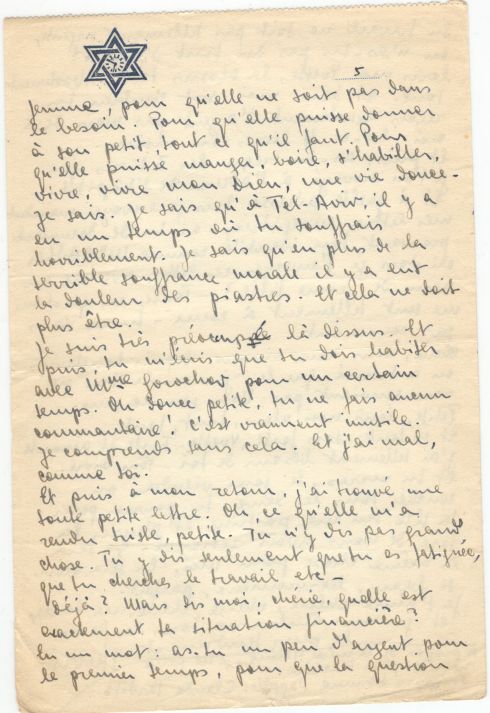 5
femme, pour qu'elle ne soit pas dans
le besoin. Pour qu'elle puisse donner
à son petit, tout ce qu'il faut. Pour
qu'elle puisse manger, boire, s'habiller,
vivre, vivre mon bien, une vie douce.
Je sais. Je sais qu'à Tel-Aviv, il y a
eu un temps où tu souffrais
horriblement. Je sais qu'en plus de la
terrible souffrance morale il y a eut
la douleur des piastres. Et cela ne doit
plus être.
Je suis très préoccupé là déssus. Et
puis, tu m'écris que tu dois habiter
avec Mme Gorochov pour un certain
temps. Oh douce petite, tu ne fais aucun
commentaire! C'est vraiment inutile.
Je comprends sans cela. Et j'ai mal,
comme toi.
Et puis à mon retour, j'ai trouvé une
toute petite lettre. Oh, ce qu'elle m'a
rendu triste, petite. Tu n'y dis pas grand
chose. Tu y dis seulement que tu es fatiguée,
que tu cherches le travail etc –
déjà? Mais dis moi, chérie, quelle est
exactement ta situation financière?
En un mot: as-tu un peu d'argent pour
le premier temps, pour que la question